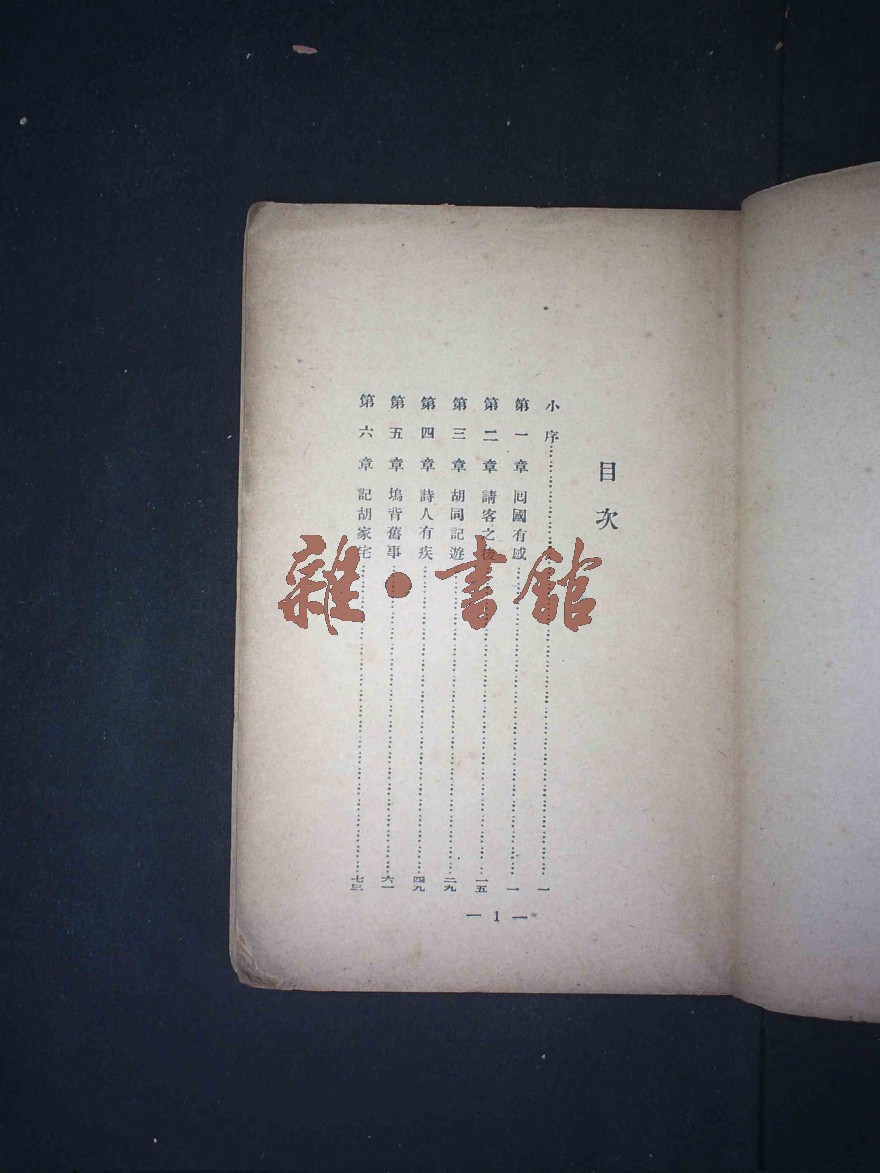 目次
小序……一
第一章 囘國有感……一
第二章 請客之後……一五
第三章 胡同記遊……二九
第四章 詩人有疾……四九
第五章 塢背舊事……六一
第六章 記胡家宅……七三
— 1 —
雜·書館